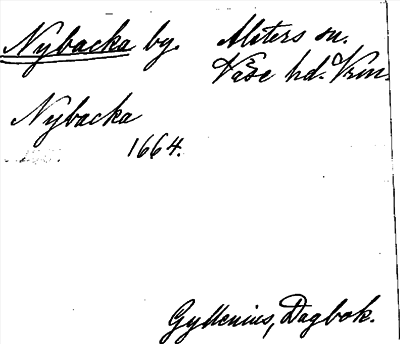 Nybacka by. Alsters sn.
Väse hd. Vrm.
Nybacka
1664.
Gyllenius, Dagbok.